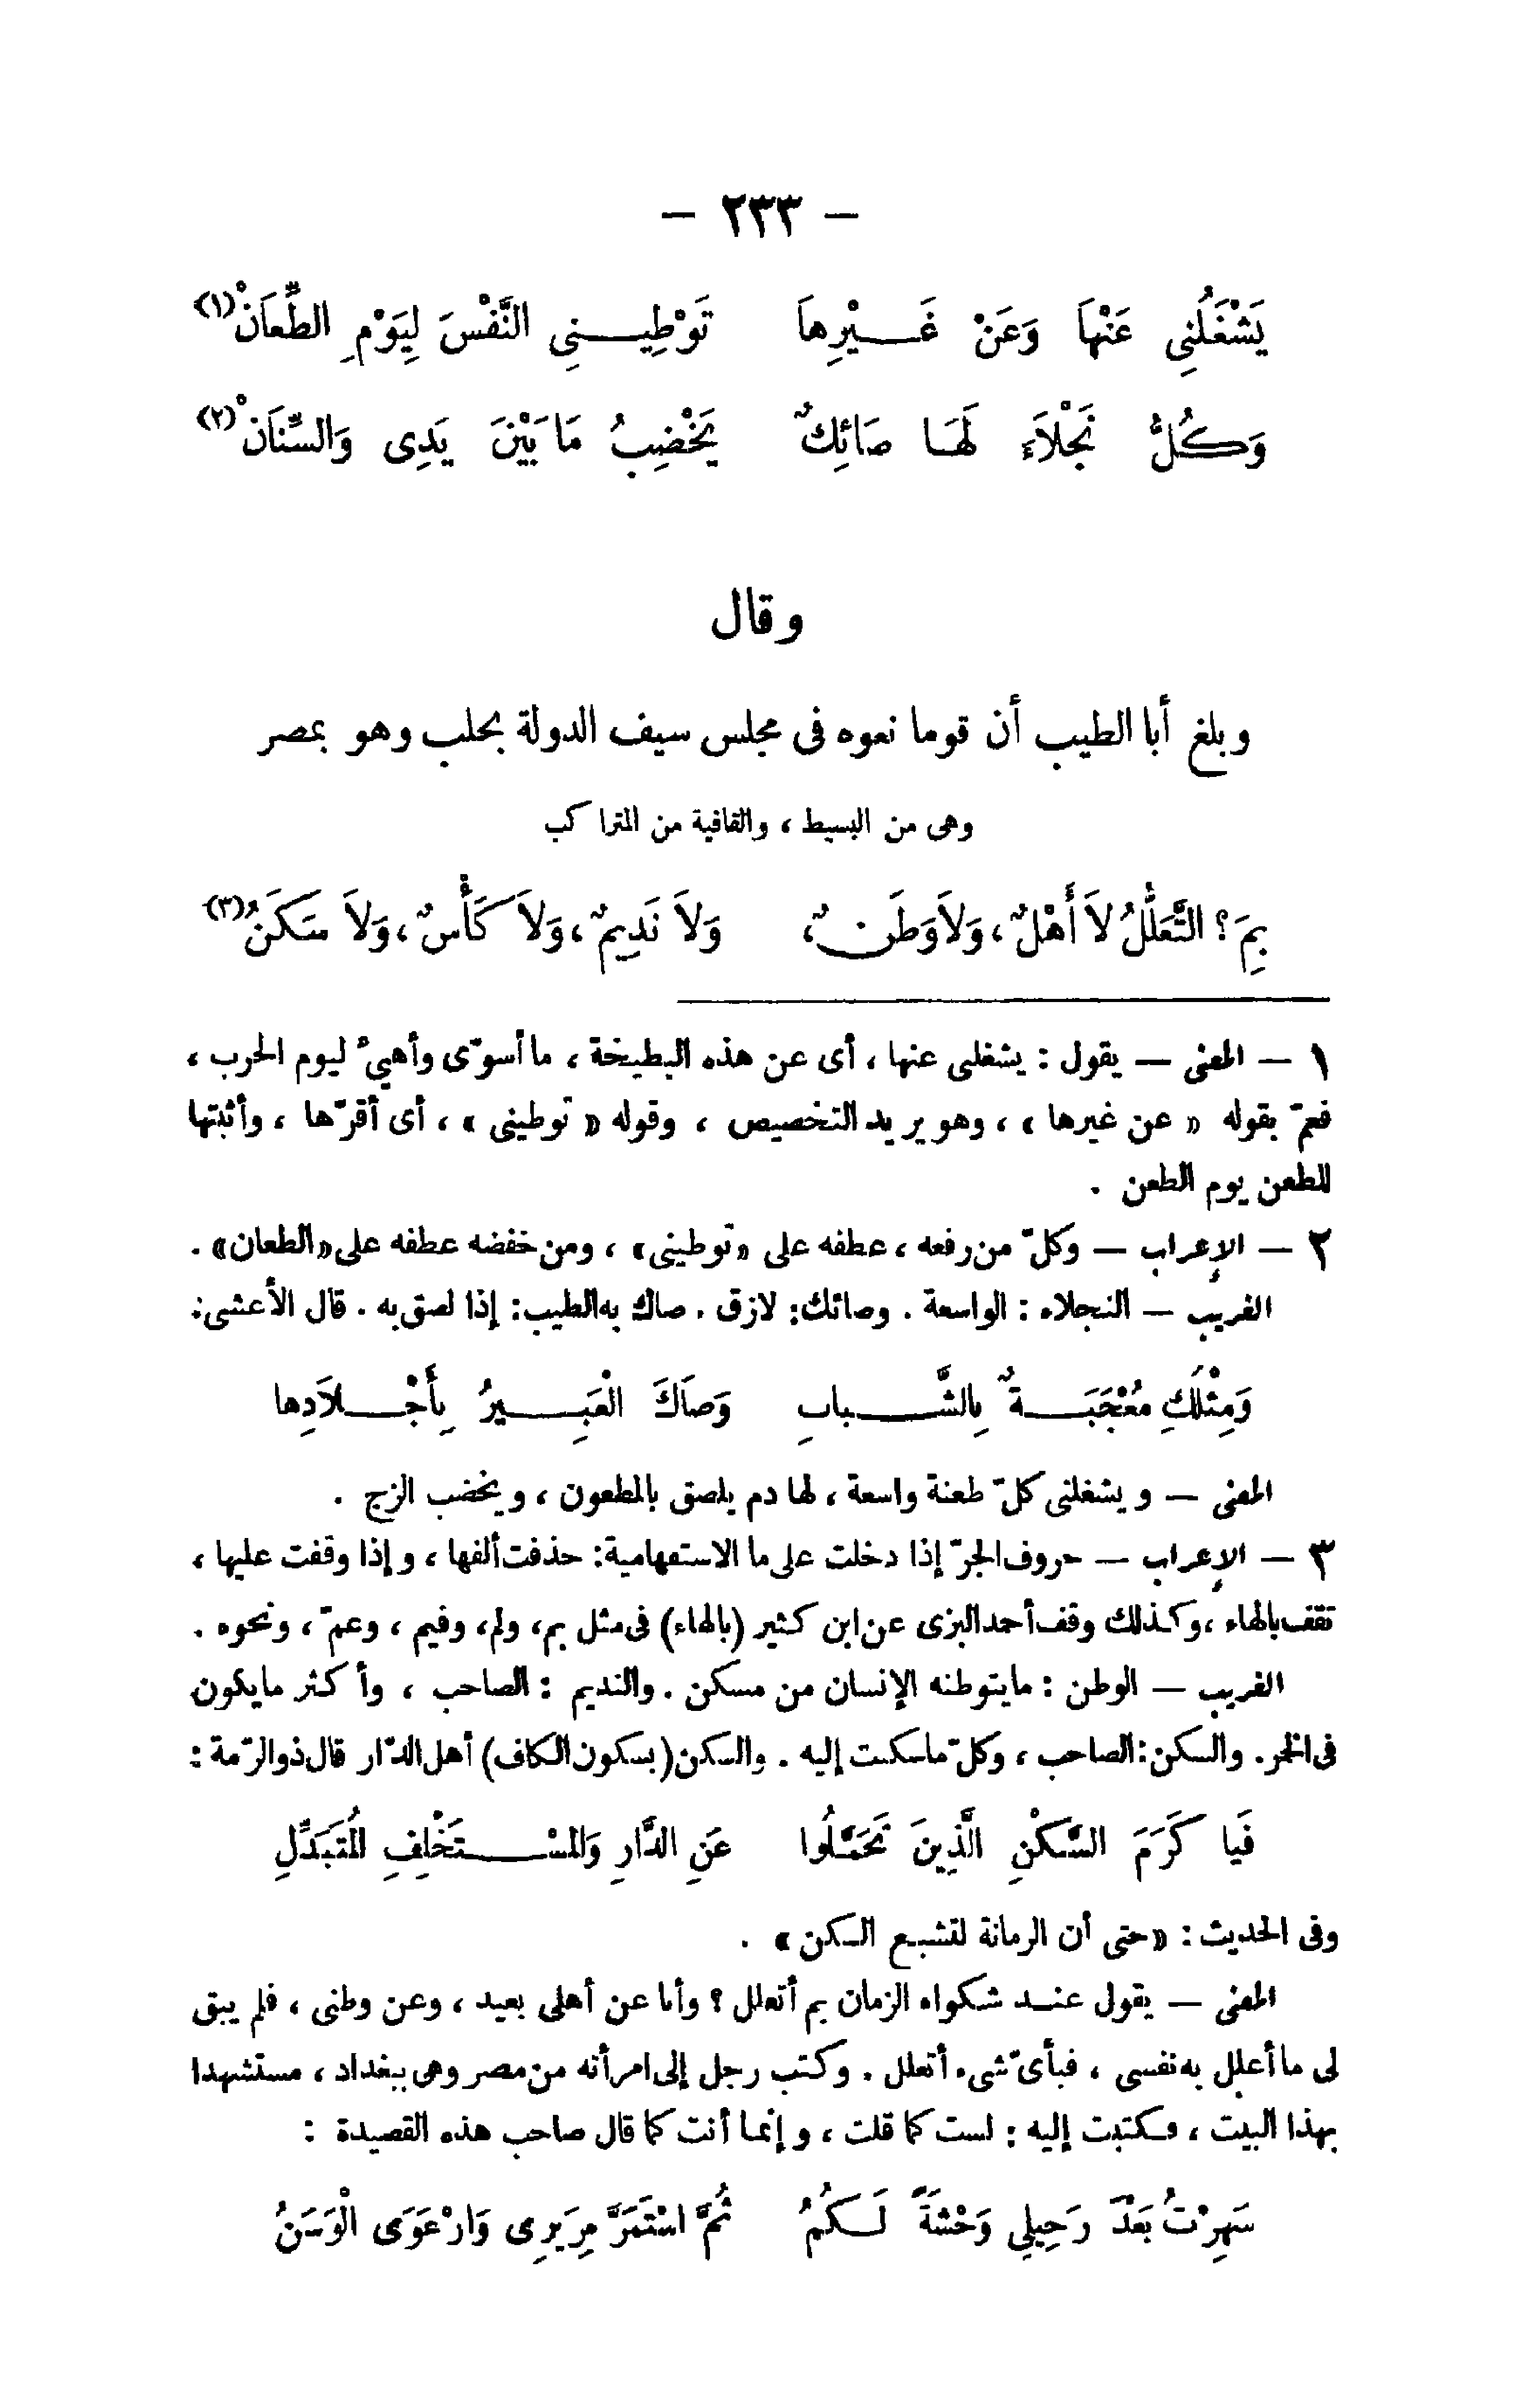 – ٢٣٣ –
يَشْغَلُنِى عَنْهَا وَعَنْ غَيْرِهاَ تَوْطِينِى النَّفْسَ لِيَوْمِ الطِّعَانْ (١)
وَكُلُّ نَجْلاَءِ لَهَا صَائِكٌ يَخْضِبُ مَا بَيْنَ يَدِى وَالسِّنَانْ (٢)
وقال
وبلغ أبا الطيب أن قوما نعوه فى مجلس سيف الدولة بحلب وهو بمصر
وهى من البسيط ، والقافية من المتراكب
بِمَ ؟ التَّعَلُّلُ لاَ أَهْلٌ ، وَلاَ وَطَنٌ ، وَلاَ نَدِيمٌ ، وَلاَ كَأْسٌ ، وَلاَ سَكَنُ (٣)
١ – المعنى – يقول : يشغلنى عنها ، أى عن هذه البطيخة ، ما أسوّى وأهيئ ليوم الحرب ،
فعمّ بقوله « عن غيرها » ، وهو يريد التخصيص ، وقوله « توطينى » ، أى أقرّها ، وأثبتها
للطعن يوم الطعن .
٢ – الإعراب – وكلّ من رفعه ، عطفه على «توطينى» ، ومن خفضه عطفه على «الطعان» .
الغريب – النجلاء : الواسعة . وصائك: لازق . صاك به الطيب: إذا لصق به . قال الأعشى:
وَمِثْلُكِ مُعْجَبَةٌ بِالشَّبابِ وَصَاَكَ الْعَبِيرُ بِأَجْلاَدِها
المعنى – ويشغلنى كلّ طعنة واسعة ، لها دم يلصق بالمطعون ، ويخضب الزج .
٣ – الإعراب – حروف الجرّ إذا دخلت على ما الاستفهامية: حذفت ألفها ، وإذا وقفت عليها ،
تقف بالهاء ، وكذلك وقف أحمد البزى عن ابن كثير (بالهاء) فى مثل بم، ولم، وفيم ، وعمّ ، ونحوه .
الغريب – الوطن : ما يتوطنه الإنسان من مسكن . والنديم : الصاحب ، وأكثر ما يكون
فى الخمر. والسكن: الصاحب ، وكلّ ما سكنت إليه . والسكن (بسكون الكاف) أهل الدّار قال ذو الرّمة :
فَيا كَرَمَ السَّكْنِ الَّذِينَ تَحَمَّلُوا عَنِ الدَّارِ وَالمُسْتَخْلِفِ المُتَبَدِّلِ
وفى الحديث : «حتى أن الرمانة لتشبع السكن» .
المعنى – يقول عند شكواه الزمان بم أتعلل ؟ وأنا عن أهلى بعيد ، وعن وطنى ، فلم يبق
لى ما أعلل به نفسى ، فبأىّ شىء أتعلل . وكتب رجل إلى امرأته من مصر وهى ببغداد ، مستشهدا
بهذا البيت ، فكتبت إليه : لست كما قلت ، وإنما أنت كما قال صاحب هذه القصيدة :
سَهِرْتُ بَعْدَ رَحِيلِي وَحْشَةً لَكُمُ ثُمَّ اسْتَمَرَّ مَرِيرِى وَارْعَوَى الْوَسَنُ